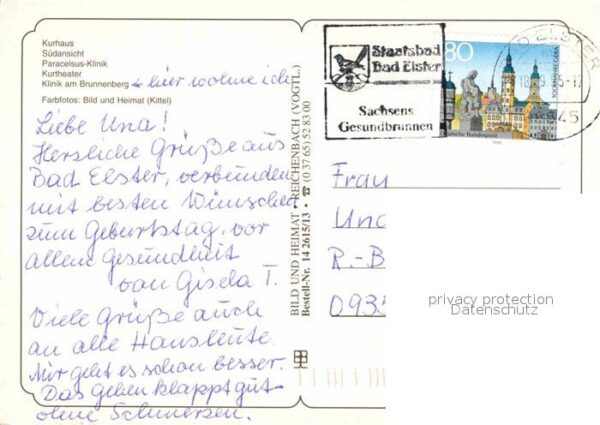 Kurhaus
Südansicht
Paracelsus-Klinik
Kurtheater
Klinik am Brunnenberg ← hier wohne ich
Farbfotos: Bild und Heimat (Kittel)
Liebe Una!
Herzliche Grüße aus
Bad Elster, verbunden
mit besten Wünschen
zum Geburtstag, vor
allem Gesundheit
von Gisela T.
Viele Grüße auch
an alle Hausleute.
Mir geht es schon besser.
Das Gehen klappt gut
ohne Schmerzen.
BILD UND HEIMAT · REICHENBACH (VOGTL.)
Bestell-Nr. 14 2615/13 · ☎ (0 37 65) 52 83 00
Staatsbad
Bad Elster
Sachsens
Gesundbrunnen
80
1000 JAHRE GERA
Deutsche Bundespost
1995
D ELSTER
08645
Frau
Una
R.-B
093
privacy protection
Datenschutz